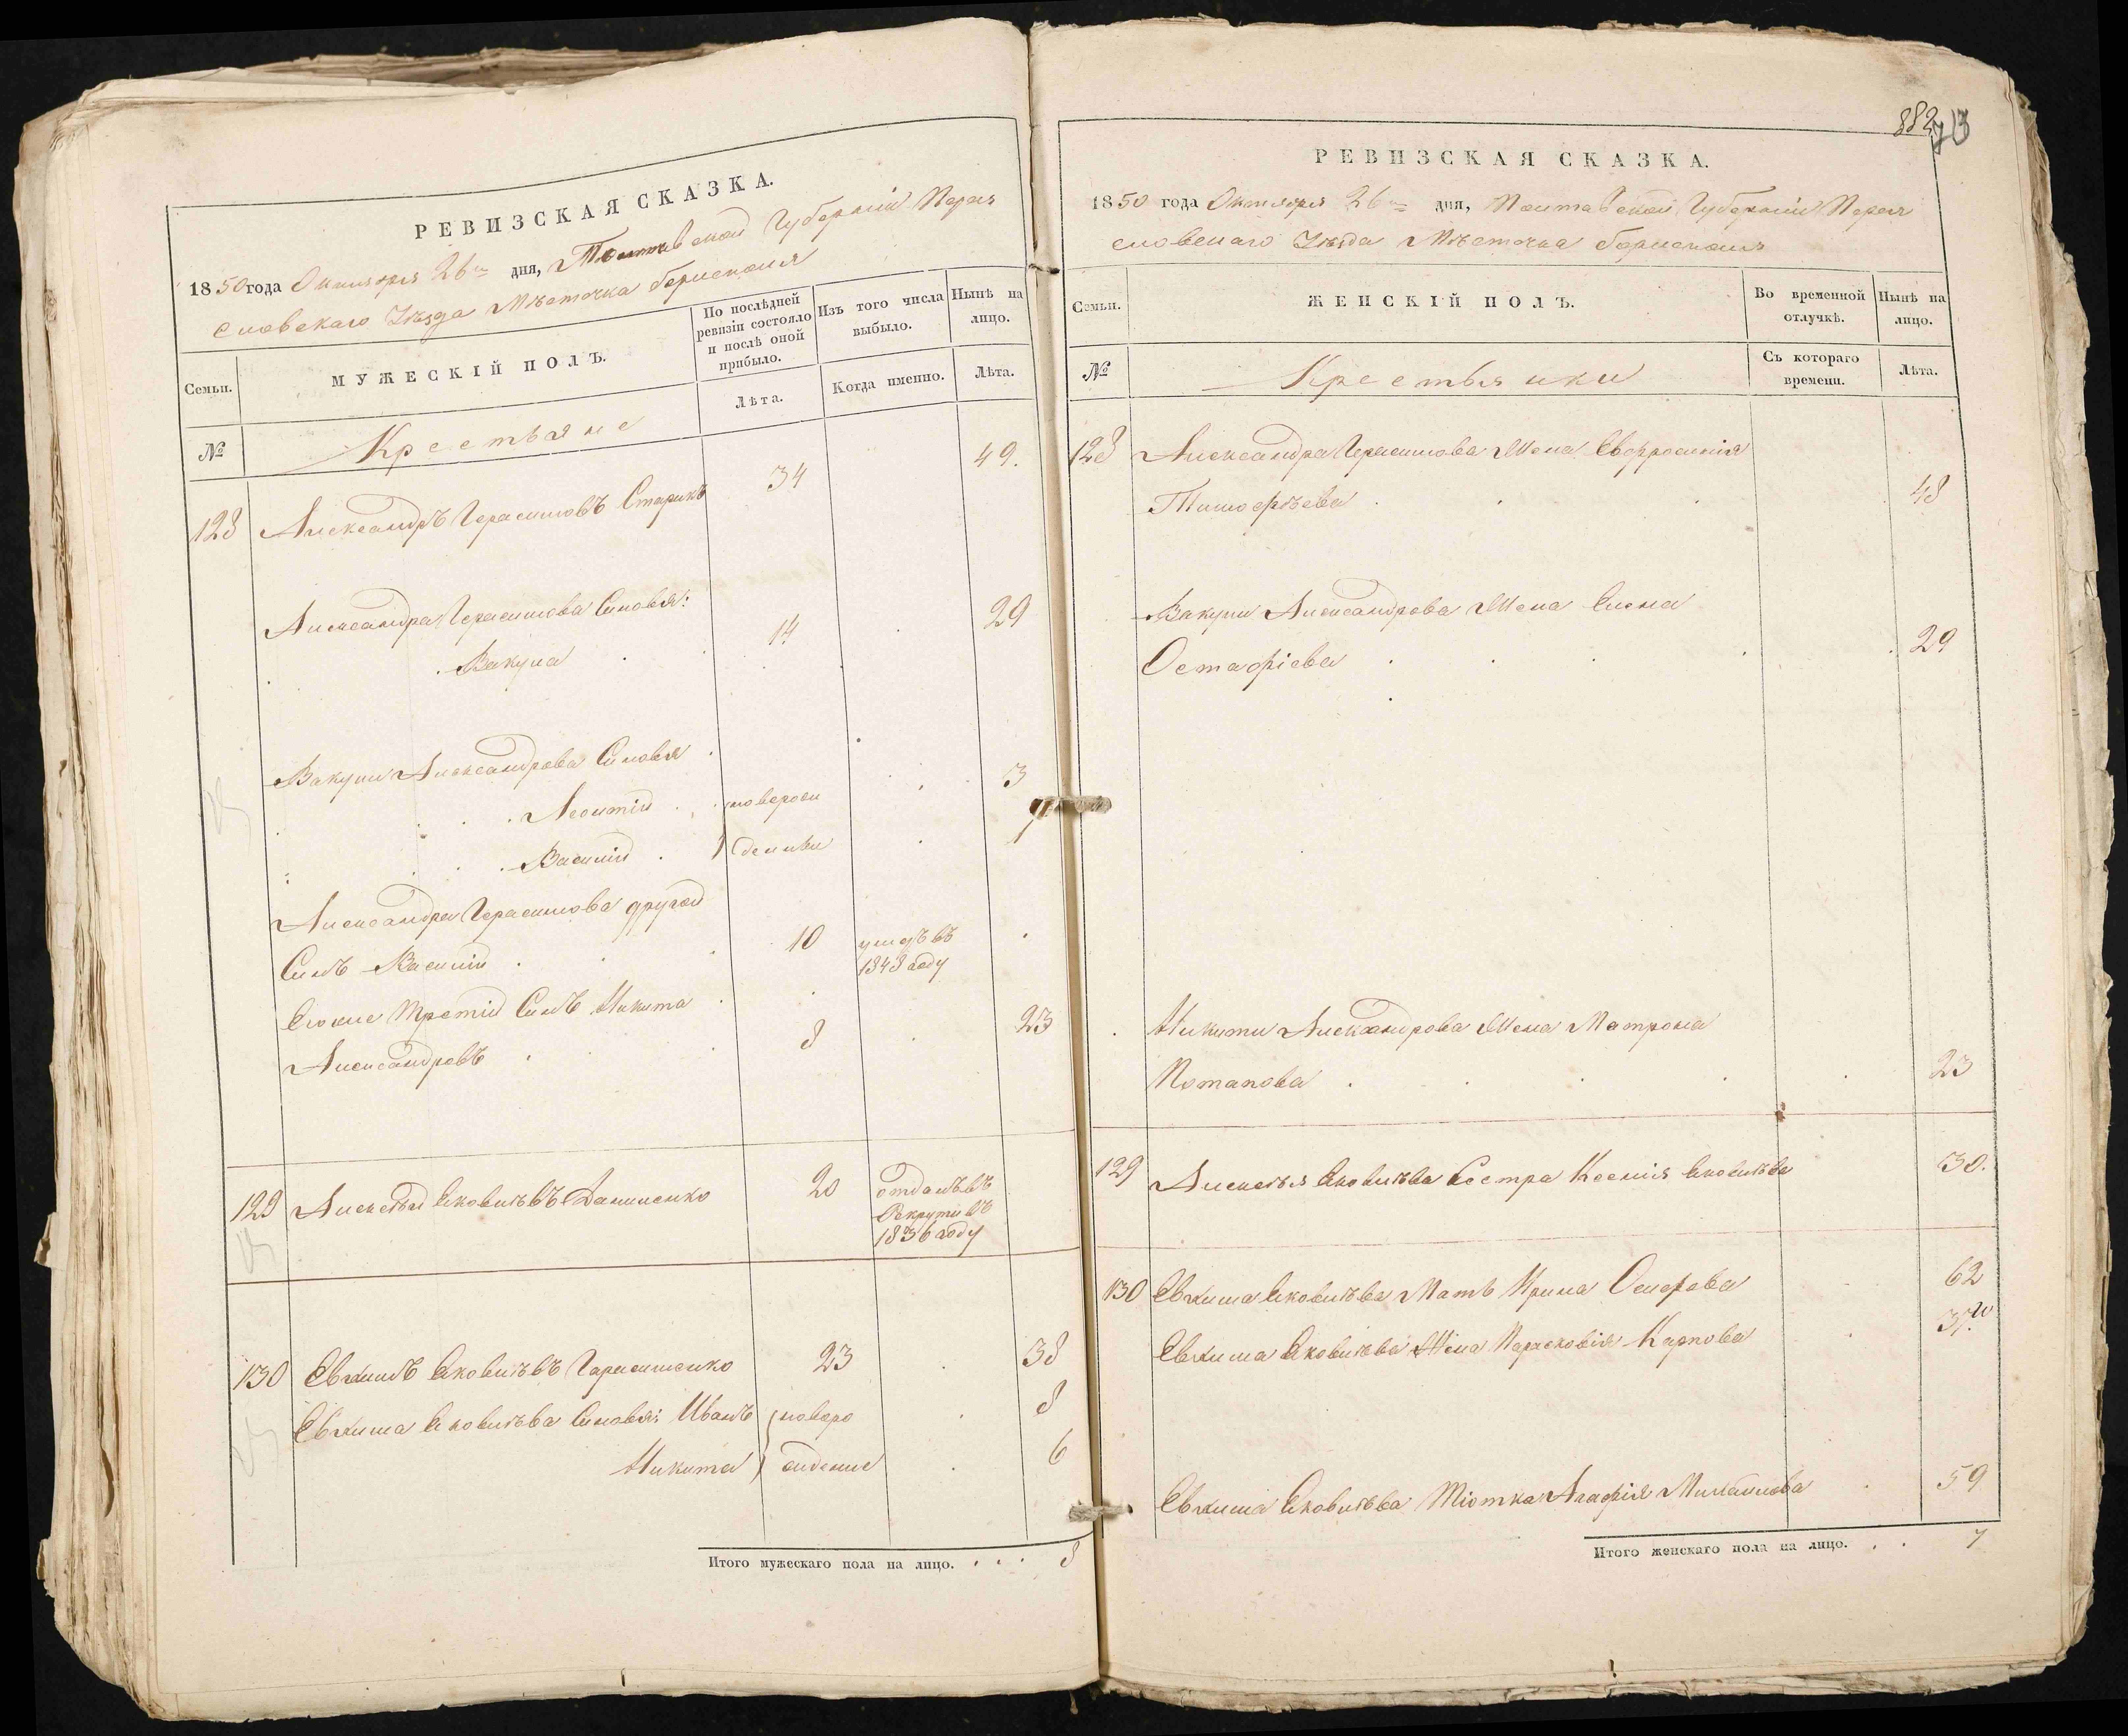 РЕВИЗСКАЯ СКАЗКА.
1850 года Октября 26го дня, Полтавской Губерніи Перея
словскаго Уѣзда Мѣстечка Борисполя
Семьи.
МУЖЕСКІЙ ПОЛЪ.
По послѣдней
ревизіи состояло
и послѣ оной
прибыло.
Изъ того числа
выбыло.
Нынѣ на
лицо.
№
Крестьяне
Лѣта.
Когда именно.
Лѣта.
128 Александръ Герасимовъ Старикъ 34 49.
Александра Герасимова Сыновья:
Вакула 14 29
Вакулы Александрова Сыновья
Леонтій новорож 3
Василій денные 1
Александра Герасимова другой
Сынъ Василій 10 умеръ въ
1848 году
Егоже Третій Сынъ Никита
Александровъ 8 23
129 Алексѣй Яковлѣвъ Данисенко 20 отданъ въ
Рекруты въ
1836 году
130 Евхимъ Яковлѣвъ Гарасименко 23 38
Евхима Яковлѣва Сыновья: Иванъ новоро 8
Никита жденые 6
Итого мужескаго пола на лицо. . . . 8
882
РЕВИЗСКАЯ СКАЗКА.
1850 года Октября 26го дня, Полтавской Губерніи Перея
словскаго Уѣзда Мѣстечка Борисполя
Семьи.
ЖЕНСКІЙ ПОЛЪ.
Во временной
отлучкѣ.
Нынѣ на
лицо.
№
Крестьянки
Съ котораго
времени.
Лѣта.
128 Александра Герасимова Жена Евфросинія
Тимофѣева 48
Вакулы Александрова Жена Елена
Остафіева 29
Никиты Александрова Жена Матрона
Потапова 23
129 Алексѣя Яковлѣва Сестра Ксенія Яковлѣва 30.
130 Евхима Яковлѣва Мать Ирина Осифова 62
Евхима Яковлѣва Жена Парасковія Карпова 37.
Евхима Яковлѣва Тіотка Агафія Михайлова 59
Итого женскаго пола на лицо. . . 7